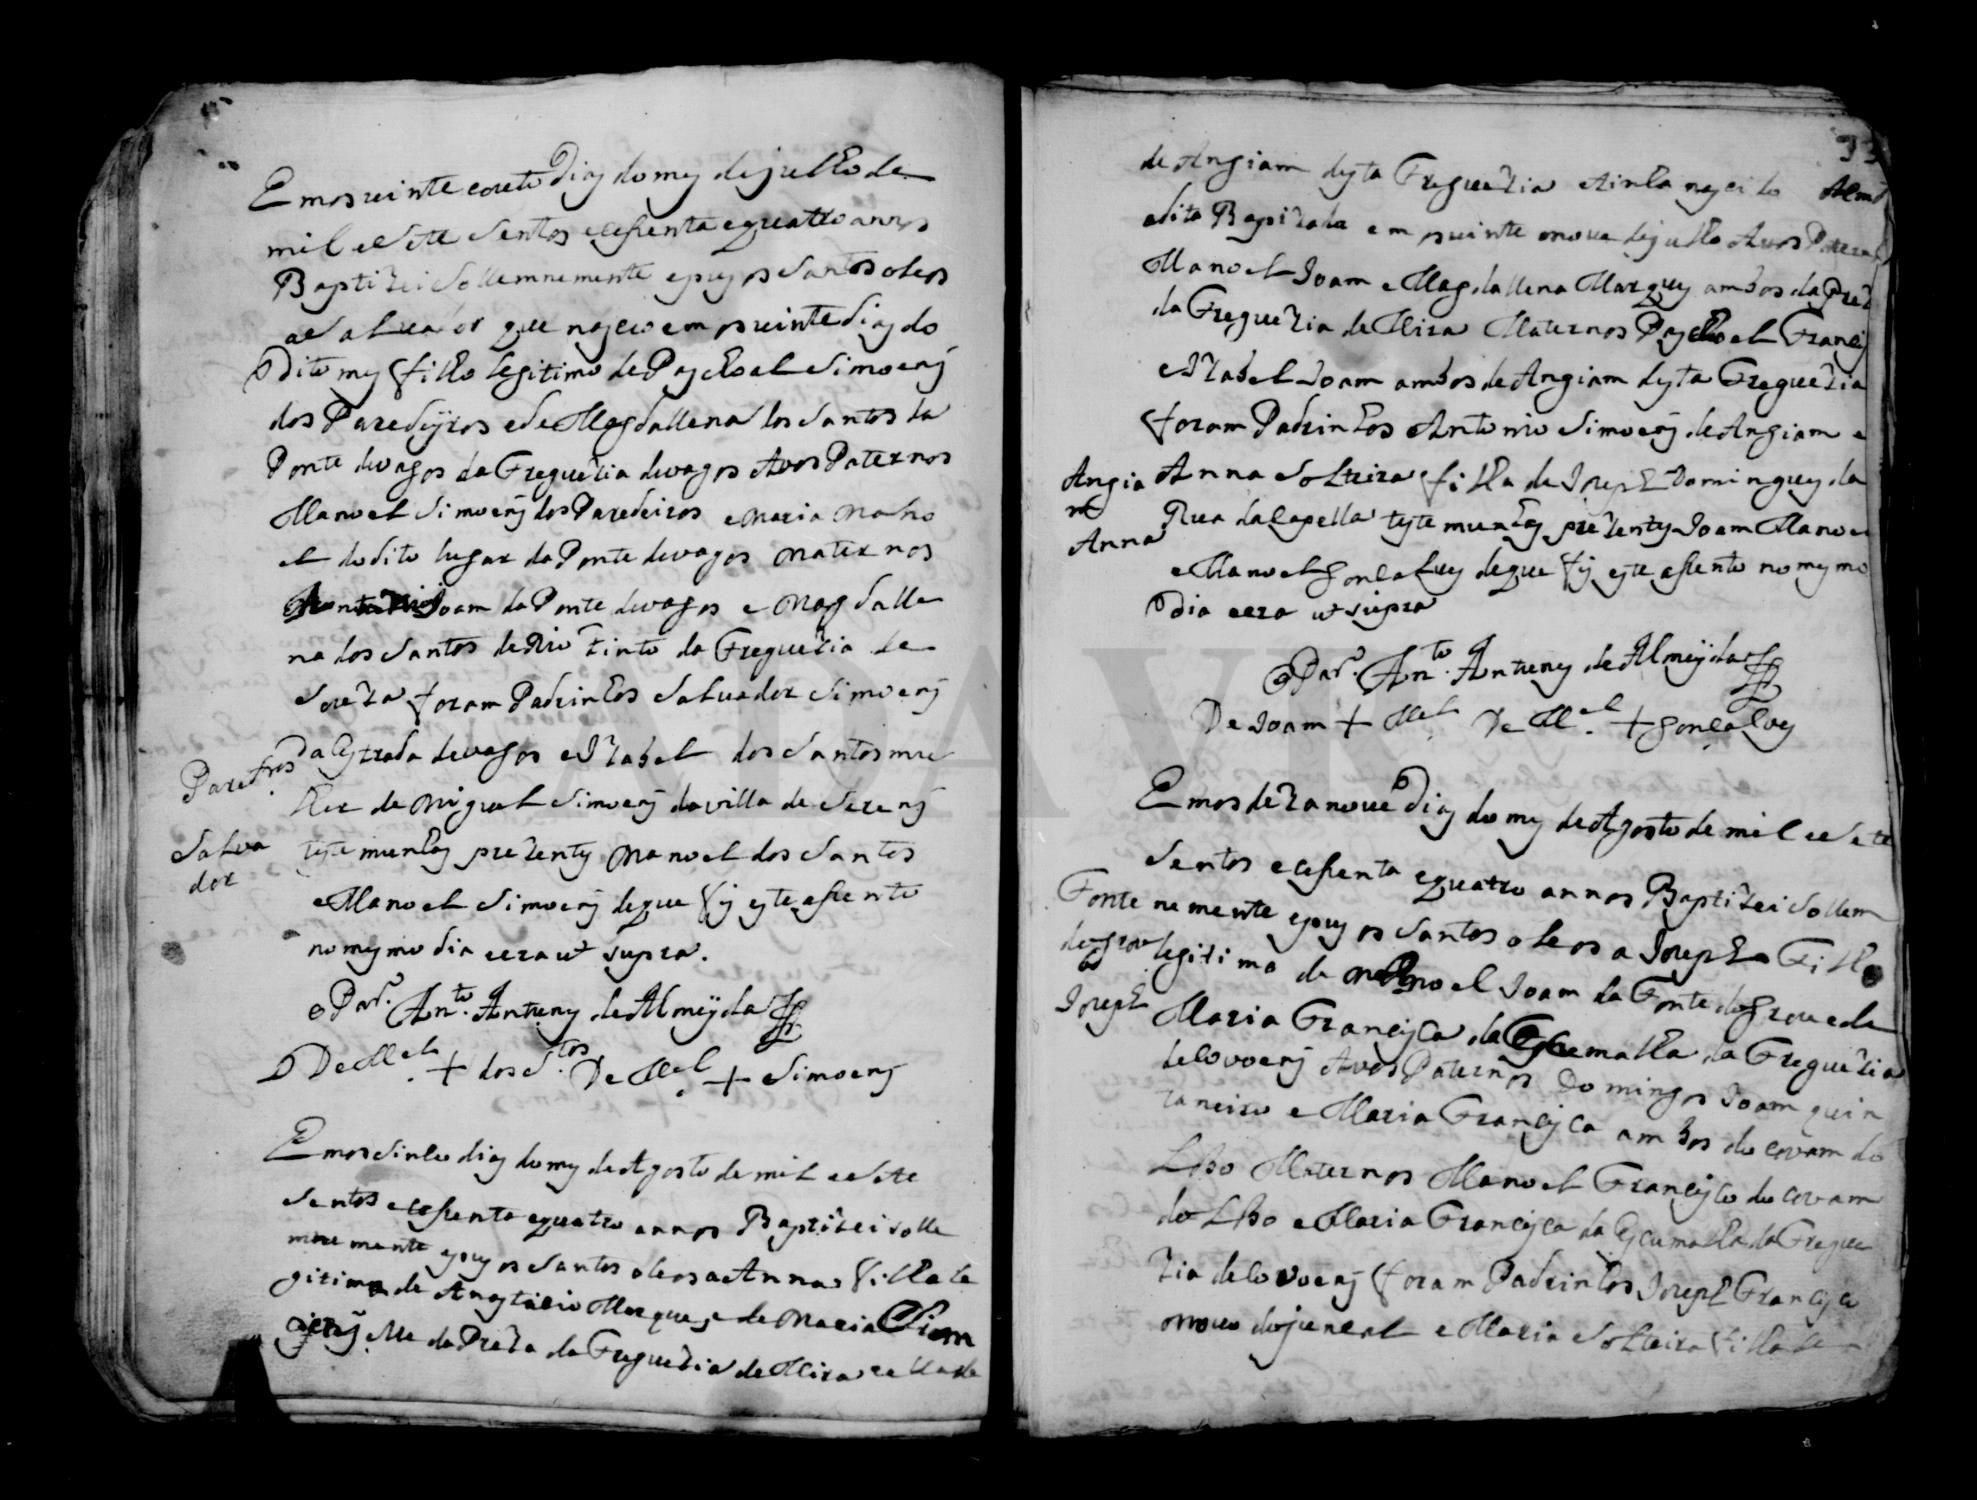 Em os vinte e outo dias do mes de julho de
mil e Sete Sentos e cesenta e quatro annos
Baptizei Sollemnemente e pus os Santos oleos
a Salvador que naseo em os vinte dias do
Dito mes filho legitimo de Paschoal Simoens
dos Paredÿros e de Magdallena dos Santos da
Ponte devagos da Freguezia devagos Avos Paternos
Manoel Simoens dos Paredeiros e Maria Mano
el do dito lugar da Ponte devagos Maternos
Joam da Ponte devagos e Magdalle
na dos Santos de Rio Tinto da Freguezia de
Soreza foram Padrinhos Salvador Simoens
Da Estrada devagos e Izabel dos Santos mu
lher de Miguel Simoens da villa de Serem
testemunhas prezentes Manoel dos Santos
e Manoel Simoens de que fis este asento
no mesmo dia e era ut supra.
Paredros
Salva
dor
o Par.º An.to Antunes de Almeÿda
De M.el + dos S.tos De M.el + Simoens
Em os Sinco dias do mes de Agosto de mil e Sete
Sentos e cesenta e quatro annos Baptizei solle
mnemente e pus os Santos oleos a Anna filha le
gitima de Anastacio Marques e de Maria
elle da Preza da Freguezia de Mira e ella de
33
de Angiam desta Freguezia e tinha nascido
a dita Baptizada em os vinte e nove de julho Avos Paternos
Manoel Joam e Magdallena Marques ambos da Prez
da Freguezia de Mira Maternos Paschoel Francis
e Izabel Joam ambos de Angiam desta Freguezia
foram Padrinhos Antonio Simoens de Angiam e
Anna Solteira filha de Joseph Domingues da
Rua da Capella testemunhas prezentes Joam Mano
e Manoel Gonsalves de que fis este asento no mesmo
Dia e era ut supra
Angia
m
Anna
o Par.º An.to Antunes de Almeÿda
De Joam + M.el De M.el + Gonçalves
Em os dezanove Dias do mes de Agosto de mil e Sete
Sentos e cesenta e quatro annos Baptizei Sollem
nemente e pus os Santos oleos a Joseph Filho
legitimo de Manoel Joam da Fonte do Grou e de
Maria Francisca da Escumalha da Freguezia
de Sovoens Avos Paternos Domingos Joam quin
taneiro e Maria Francisca ambos do covam do
Lobo Maternos Manoel Francisco do covam
do Lobo e Maria Francisca da Escumalha da Fregue
zia de Sovoens foram Padrinhos Joseph Francisco
novo do juncal e Maria Solteira filha de
Fonte
do grou
Joseph